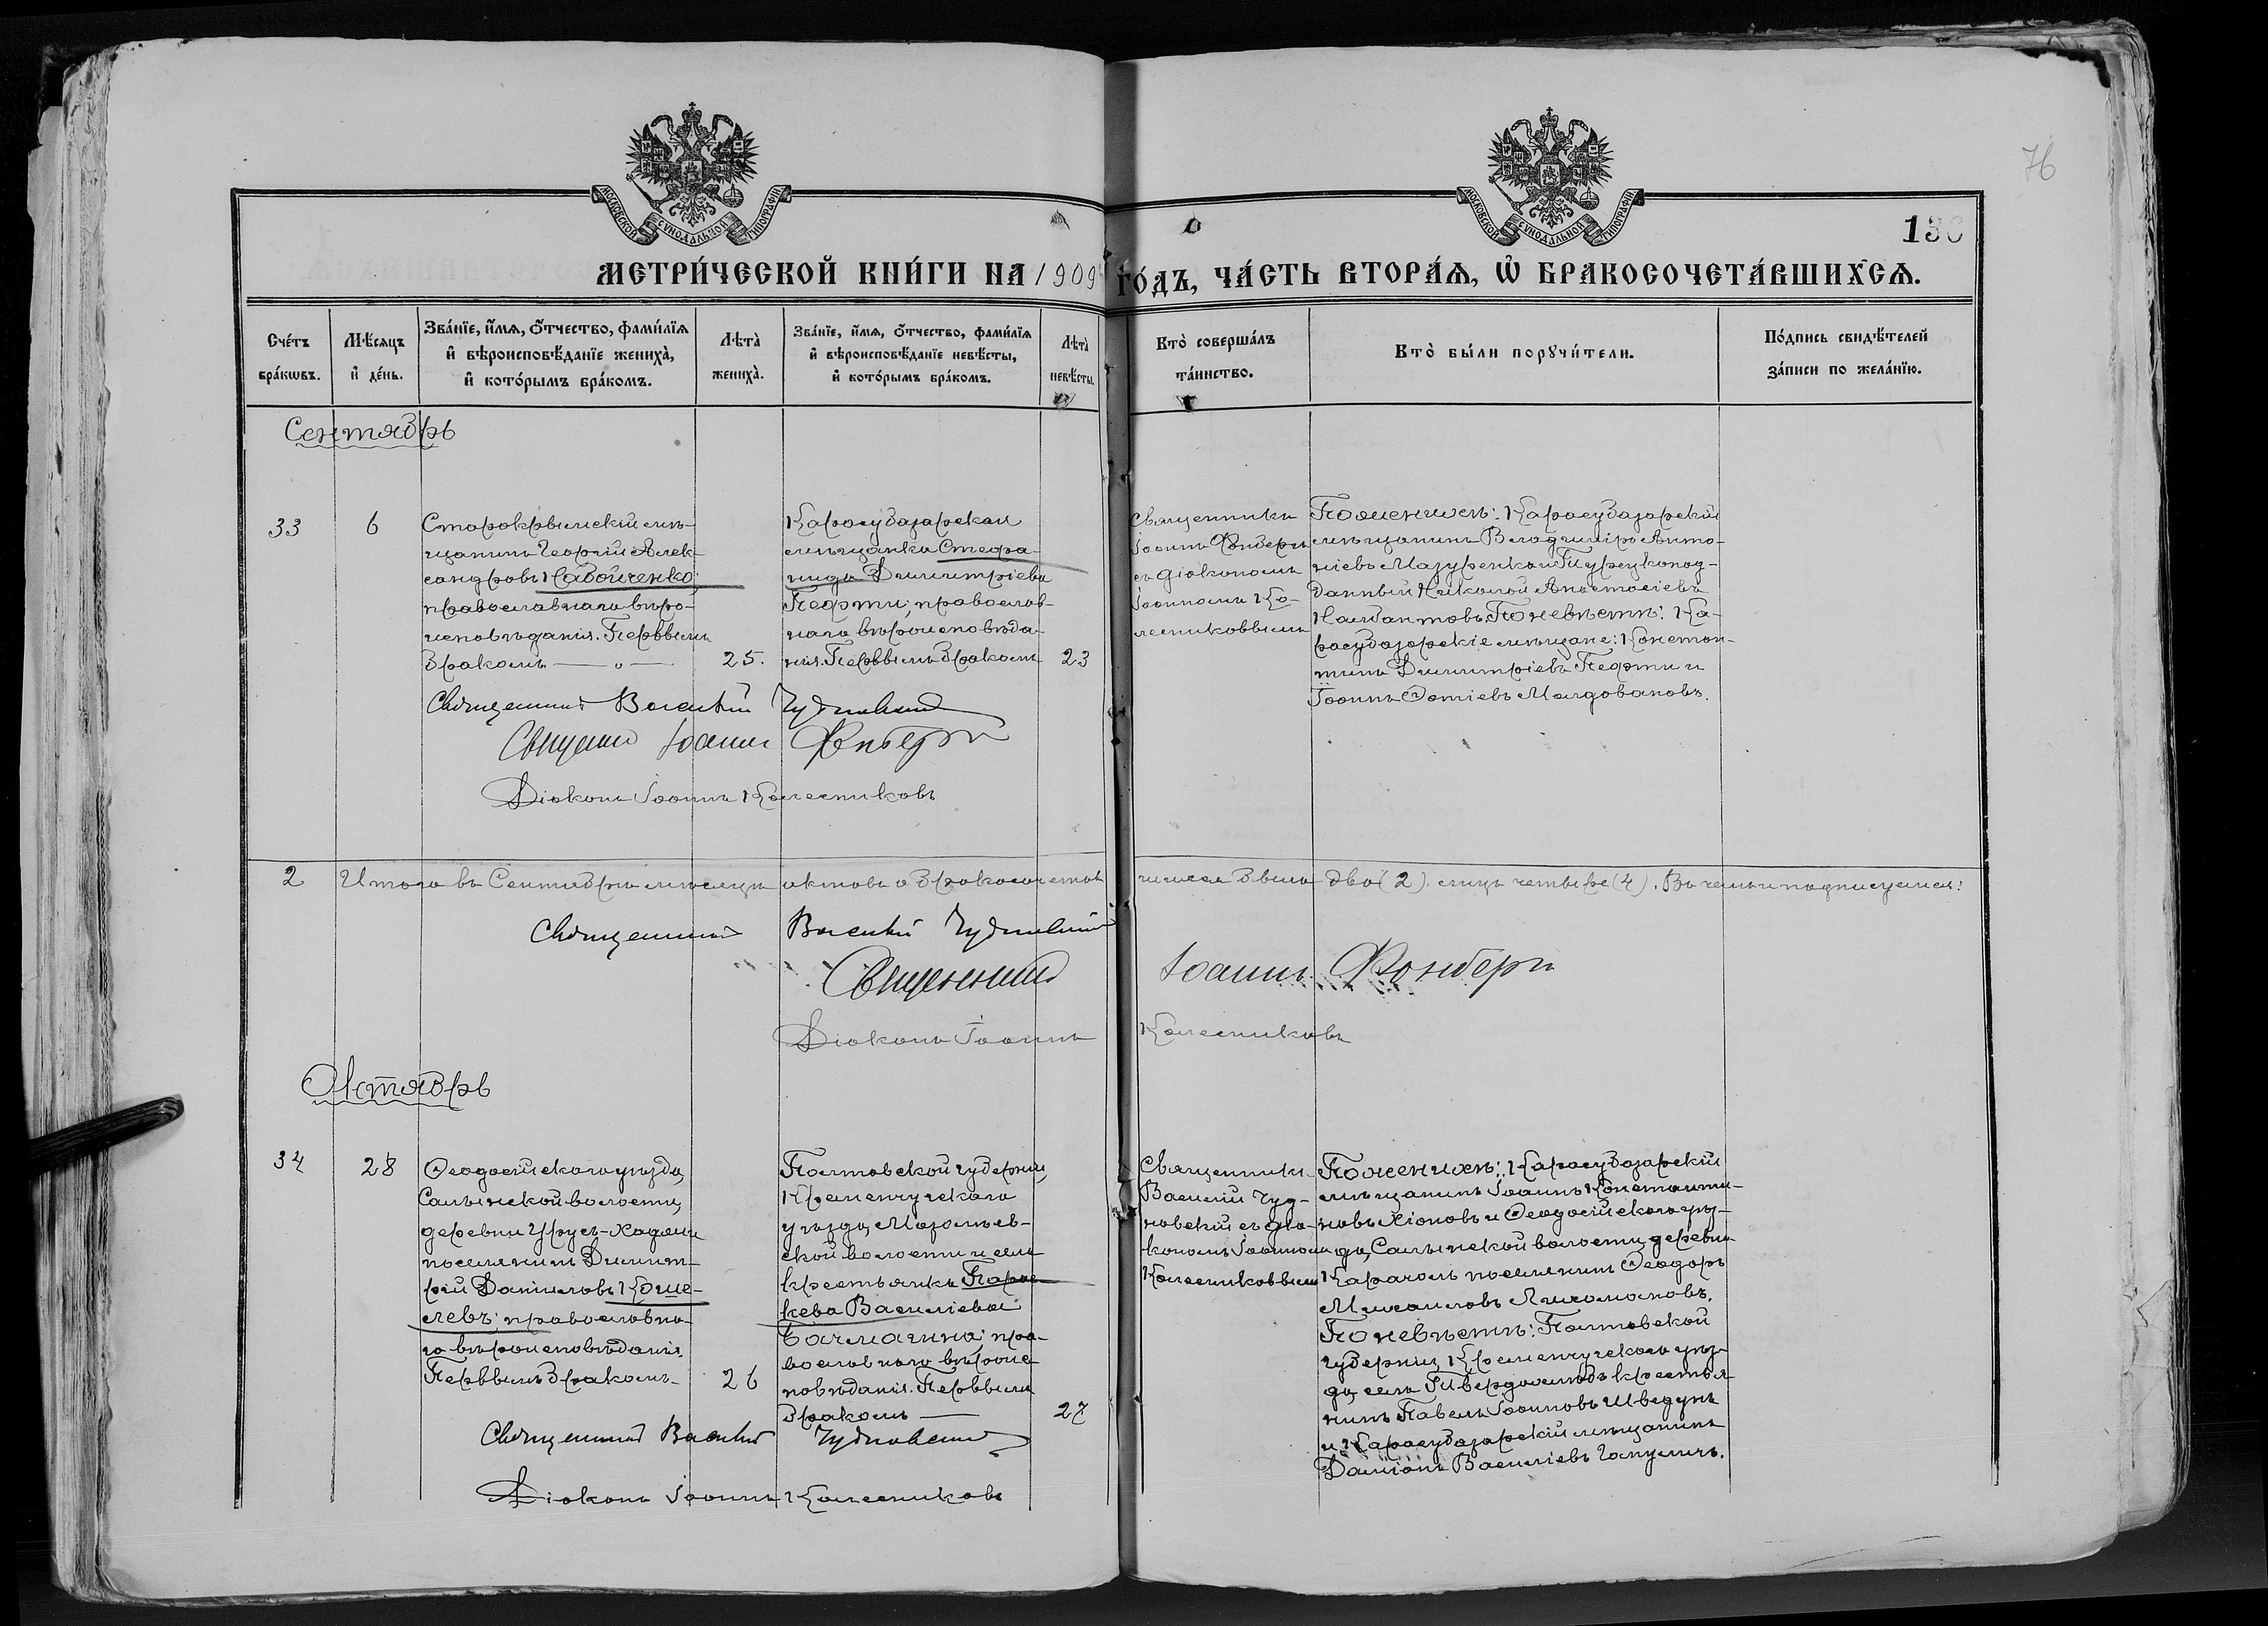 76
МОСКОВСКОЙ СѴНОДАЛЬНОЙ ТИПОГРАФІИ
МОСКОВСКОЙ СѴНОДАЛЬНОЙ ТИПОГРАФІИ
130
МЕТРИ́ЧЕСКОЙ КНИ́ГИ НА 1909 ГО́ДЪ, ЧА́СТЬ ВТОРА́Я, Ѡ҆ БРАКОСОЧЕТА́ВШИХСЯ.
Сче́тъ
бра́кѡвъ.
Мѣ́сяцъ
и҆ де́нь.
Зва́нїе, и҆́мя, о҆́тчество, фами́лїя
и҆ вѣроисповѣ́данїе жениха̀,
и҆ кото́рымъ бра́комъ.
Лѣта̀
жениха̀.
Зва́нїе, и҆́мя, о҆́тчество, фами́лїя
и҆ вѣроисповѣ́данїе невѣ́сты,
и҆ кото́рымъ бра́комъ.
Лѣта̀
невѣ́сты.
Кто̀ соверша́лъ
та́инство.
Кто̀ бы́ли порꙋчи́тели.
По́дпись свидѣ́телей
за́писи по жела́нїю.
Сентябрь
33
6
Старокрымскій мѣ-
щанинъ Георгій Алек-
сандровъ Набойченко;
православнаго вѣро-
исповѣданія. Первымъ
бракомъ — „ —
25.
Карасубазарская
мѣщанка Стефа-
нида Димитріева
Пефти; православ-
наго вѣроисповѣда-
нія. Первымъ бракомъ
23
Священникъ
Іоаннъ Фонбергъ
съ діакономъ
Іоанномъ Ко-
лесниковымъ
По женихѣ: Карасубазарскій
мѣщанинъ Владиміръ Анто-
ніевъ Мазуренко и Турецкопод-
данный Николай Анастасіевъ
Налбантовъ. По невѣстѣ: Ка-
расубазарскіе мѣщане: Констан-
тинъ Димитріевъ Пефти и
Іоаннъ Фотіевъ Молдовановъ.
Священникъ Василій Чудновскій
Священникъ Іоаннъ Фонбергъ
Діаконъ Іоаннъ Колесниковъ
2
Итого въ Сентябрѣ мѣсяцѣ актовъ о бракосочетав
шихся было два (2), лицъ четыре (4). Въ чемъ и подписуемся:
Священникъ Василій Чудновскій
Священникъ Іоаннъ Фонбергъ
Діаконъ Іоаннъ Колесниковъ
Октябрь
34
28
Ѳеодосійскаго уѣзда,
Салынской волости,
деревни Урусъ-Ходжи
поселянинъ Димит-
рій Даниловъ Коше-
левъ; православна-
го вѣроисповѣданія.
Первымъ бракомъ.
26
Полтавской губерніи,
Кременчугскаго
уѣзда,
ской волости и села
крестьянка Парас-
кева Василіева
Бачмагина; пра-
вославнаго вѣроис-
повѣданія. Первымъ
бракомъ —
27
Священникъ
Василій Чуд-
новскій съ діа-
кономъ Іоанномъ
Колесниковымъ
По женихѣ: Карасубазарскій
мѣщанинъ Іоаннъ Константи-
новъ Хіоновъ и Ѳеодосійскаго уѣз-
да, Салынской волости, деревни
Карачоль поселянинъ Ѳеодоръ
Михаиловъ Лихомановъ.
По невѣстѣ: Полтавской
губерніи, Кременчугскаго уѣз-
да, села крестья-
нинъ Павелъ Іоанновъ Шведунъ
и Карасубазарскій мѣщанинъ
Даміанъ Василіевъ Гапуличъ.
Священникъ Василій Чудновскій
Діаконъ Іоаннъ Колесниковъ